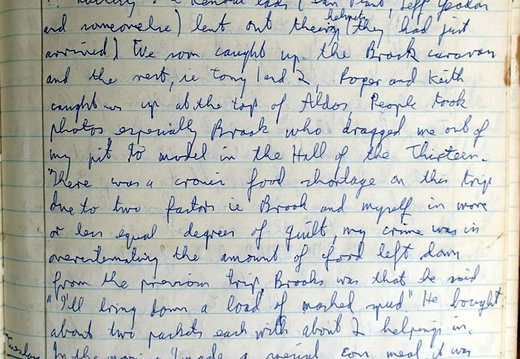 and someone else) lent out their helmets (they had just
arrived) We soon caught up the Brook caravan
and the rest, ie Tony 1 and 2, Roper and Keith
caught us up at the top of Aldos. People took
photos especially Brook who dragged me out of
my pit to model in the Hall of the Thirteen.
There was a cronic food shortage on this trip
due to two factors ie Brook and myself in more
or less equal degrees of guilt, my crime was in
overestimating the amount of food left down
from the previous trip, Brooks was that he said
"I'll bring down a load of mashed spud" He bought
about two packets each with about 2 helpings in.
In the morning I made a special corn meal it was